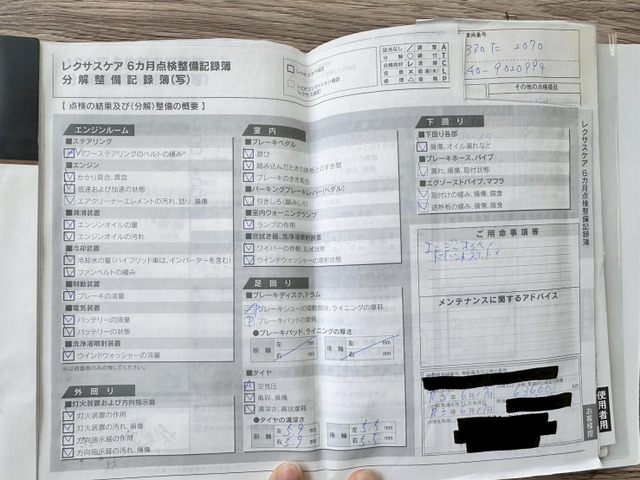 レクサスケア 6カ月点検整備記録簿
分解整備記録簿(写)
【 点検の結果及び(分解)整備の概要 】
該当なし / 調整 A
分解 ○ 締付 T
点検良好 レ 清掃 C
交換 × 給油(水) L
修理 △ 省略 P
330 て 2070
40-9020994
その他の点検項目
エンジンルーム
■ステアリング
パワーステアリングのベルトの緩み
■エンジン
かかり具合、異音
低速および加速の状態
エアクリーナーエレメントの汚れ、詰り、損傷
■潤滑装置
エンジンオイルの量
エンジンオイルの汚れ
■冷却装置
冷却水の量(ハイブリッド車は、インバーターを含む)
ファンベルトの緩み
■制動装置
ブレーキの液量
■電気装置
バッテリーの液量
バッテリーの状態
■洗浄液噴射装置
ウインドウォッシャーの液量
外回り
■灯火装置および方向指示器
灯火装置の作用
灯火装置の汚れ、損傷
方向指示器の作用
方向指示器の汚れ、損傷
室内
■ブレーキペダル
遊び
踏み込んだときの床板とのすき間
ブレーキのきき具合
■パーキングブレーキレバー(ペダル)
引きしろ(踏みしろ)
■室内ウォーニングランプ
ランプの作用
■窓拭き器、洗浄液噴射装置
ワイパーの作動、払拭状態
ウインドウォッシャーの噴射状態
足回り
■ブレーキディスク、ドラム
ブレーキシューの摺動部分、ライニングの摩耗
ブレーキパッドの摩耗
●ブレーキパッド、ライニングの厚さ
前輪 左 mm 右 mm
後輪 左 mm 右 mm
■タイヤ
空気圧
亀裂、損傷
溝深さ、異状摩耗
●タイヤの溝深さ
前輪 左 5.9 mm 右 5.9 mm
後輪 左 5.5 mm 右 5.5 mm
下回り
■下回り各部
損傷、オイル漏れなど
■ブレーキホース、パイプ
漏れ、損傷、取付状態
■エグゾーストパイプ、マフラ
取付けの緩み、損傷、腐食
遮熱板の緩み、損傷、腐食
ご用命事項等
エンジンオイル
メンテナンスに関するアドバイス
R3年6月17日
63600
R3年6月17日
レクサスケア 6カ月点検整備記録簿
使用者用
お客様控